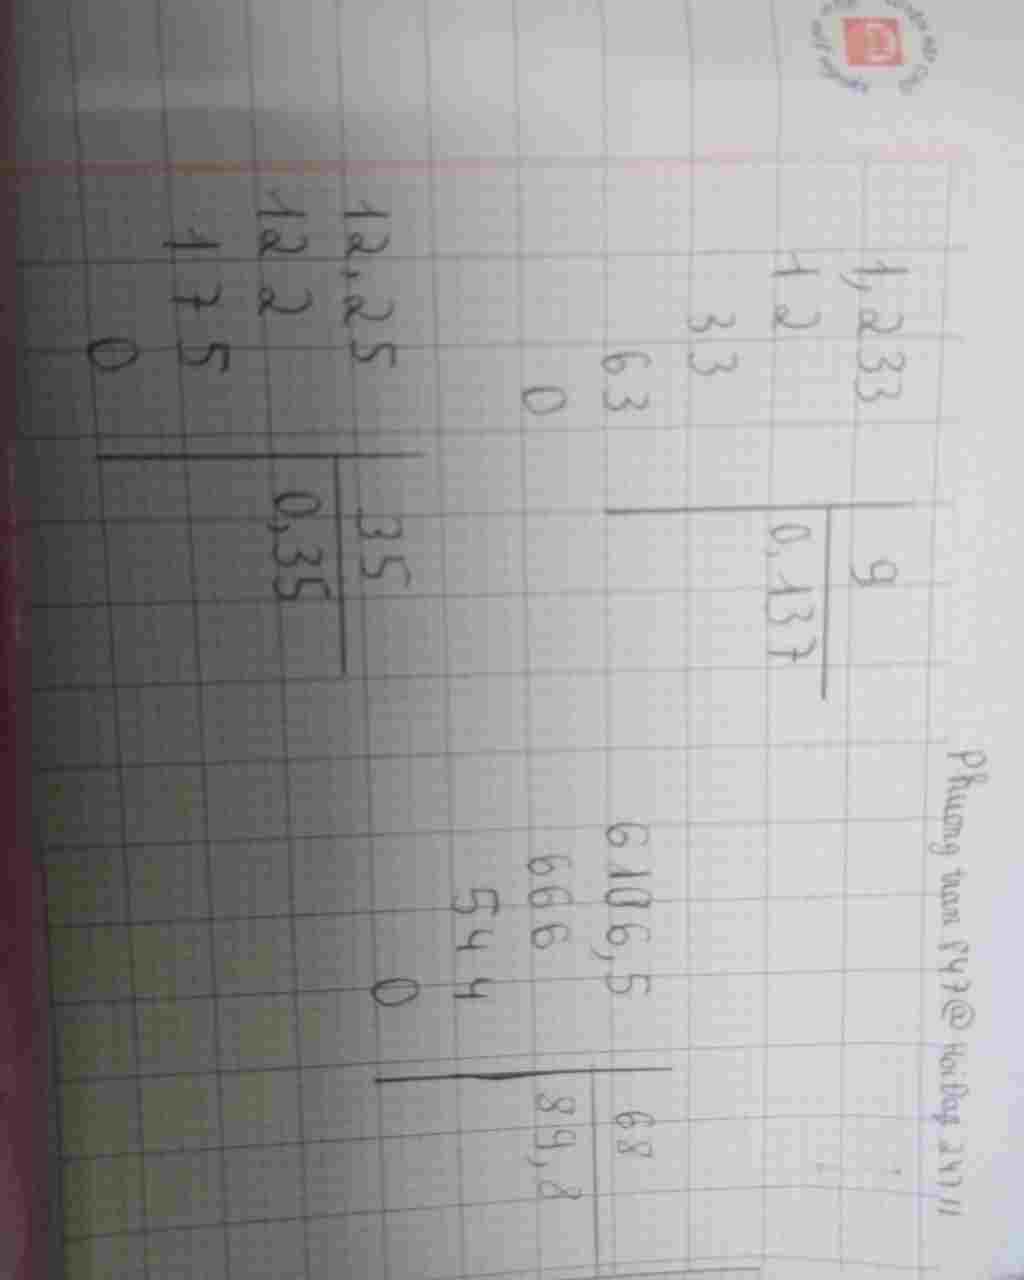 Phuong tran 847@ HoiDap 247 !!
1,233 9
12 0,137
33
63
0
6106,5 68
666 89,8
544
0
12,25 35
122 0,35
175
0